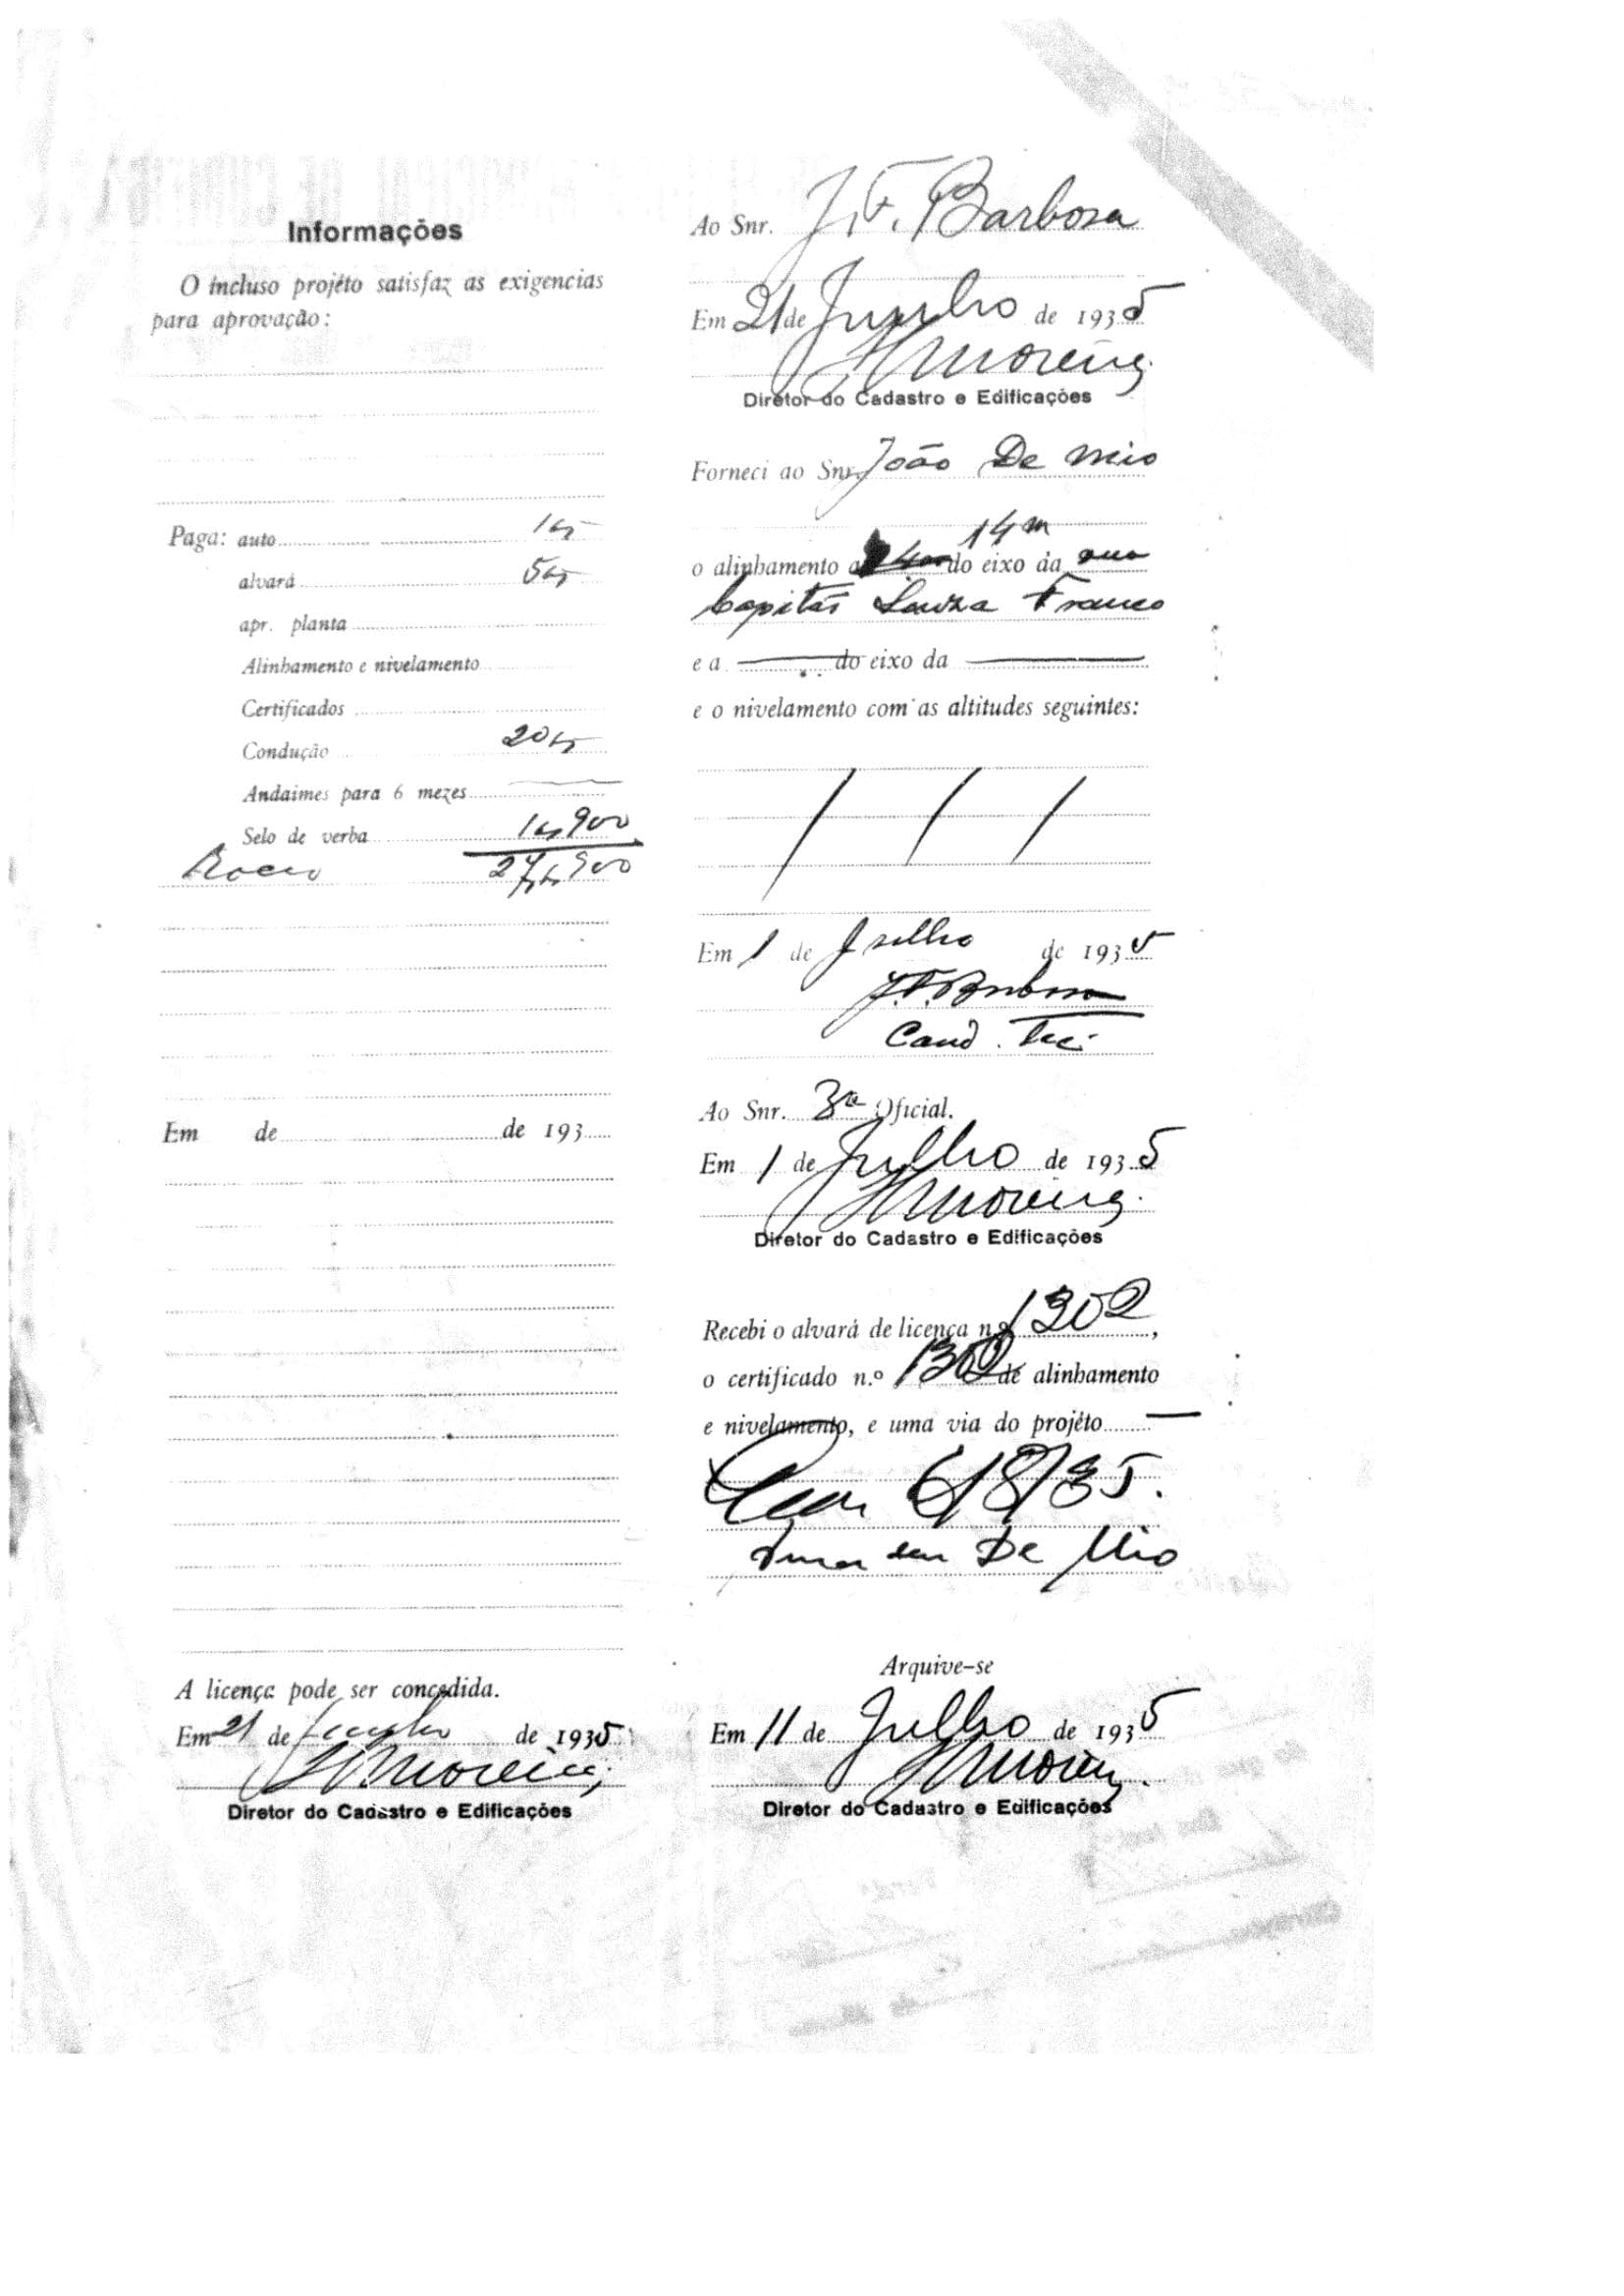 Informações
O incluso projéto satisfaz as exigencias
para aprovação:
Paga: auto 1$
alvará 5$
apr. planta
Alinhamento e nivelamento
Certificados
Condução 20$
Andaimes para 6 mezes
Selo de verba 1$900
27$900
Em de de 193
A licença pode ser concedida.
Em 21 de de 1935
Moreira
Diretor do Cadastro e Edificações
Ao Snr. J. F. Barbosa
Em 21 de Junho de 1935
Moreira
Diretor do Cadastro e Edificações
Forneci ao Snr. João De Mio
14 m
o alinhamento a do eixo da rua
Capitão Souza Franco
e a do eixo da
e o nivelamento com as altitudes seguintes:
Em 1 de Julho de 1935
J. F. Barbosa
Cond. Tec.
Ao Snr. 3º Oficial.
Em 1 de Julho de 1935
Moreira
Diretor do Cadastro e Edificações
Recebi o alvará de licença n.º 1302,
o certificado n.º 1302 de alinhamento
e nivelamento, e uma via do projéto
6/8/35.
De Mio
Arquive-se
Em 11 de Julho de 1935
Moreira
Diretor do Cadastro e Edificações